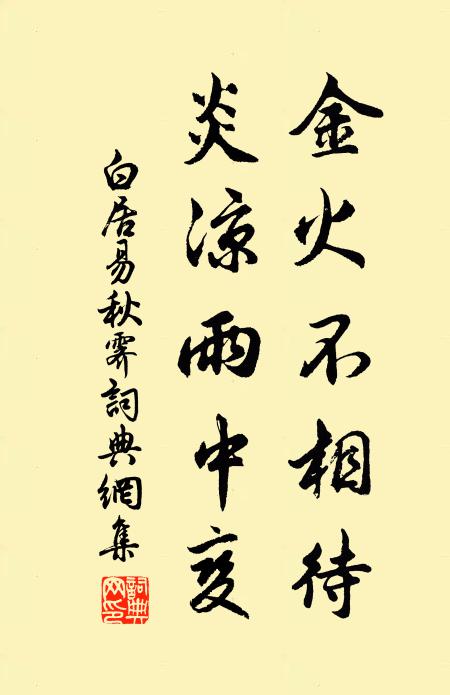 金火不相待
炎凉雨中变
白居易秋霁詞典網集
詞典網印